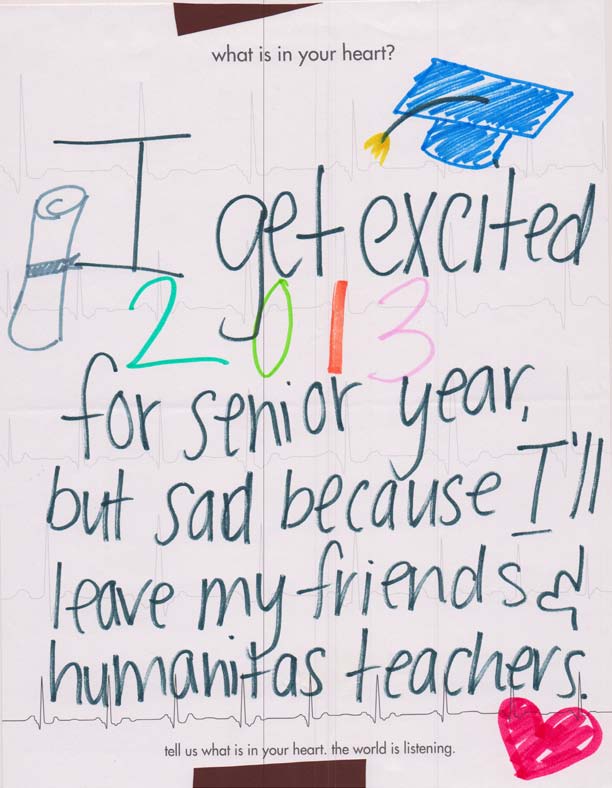 what is in your heart?
I get excited
2013
for senior year,
but sad because I'll
leave my friends &
humanitas teachers.
tell us what is in your heart. the world is listening.